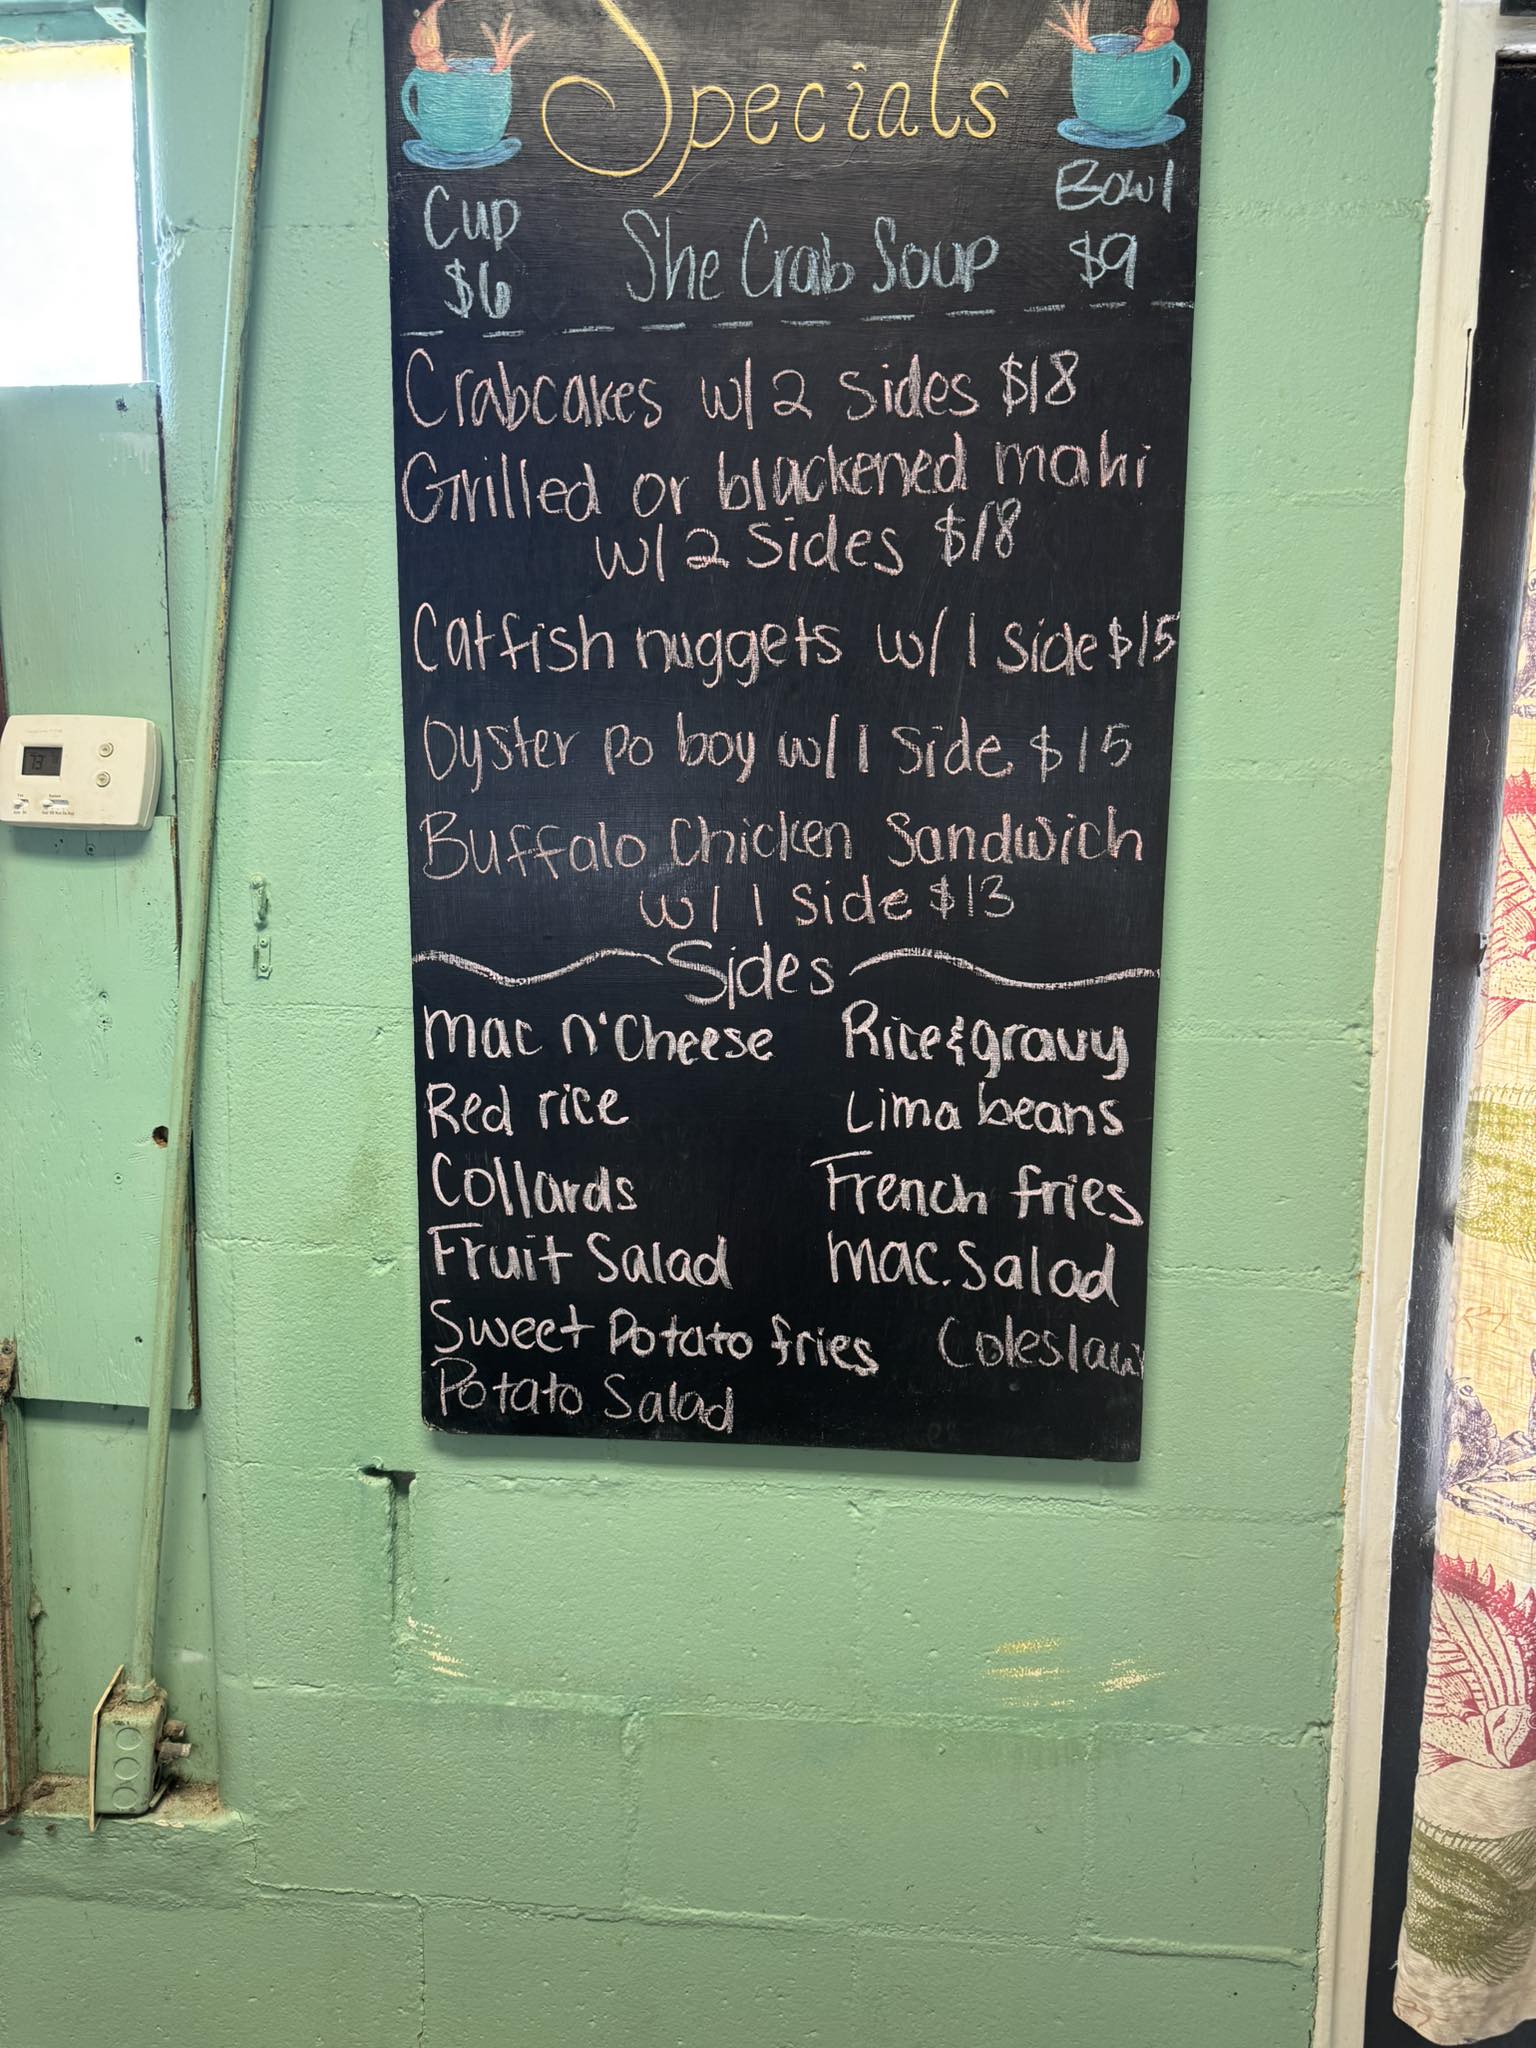 Specials
Cup
Bowl
$6
She Crab Soup
$9
Crabcakes w/ 2 sides $18
Grilled or blackened mahi
w/ 2 sides $18
Catfish nuggets w/ 1 side $15
Oyster po boy w/ 1 side $15
Buffalo Chicken Sandwich
w/ 1 side $13
Sides
Mac n' Cheese
Rice & gravy
Red rice
Lima beans
Collards
French fries
Fruit Salad
Mac. Salad
Sweet Potato fries
Coleslaw
Potato Salad
73